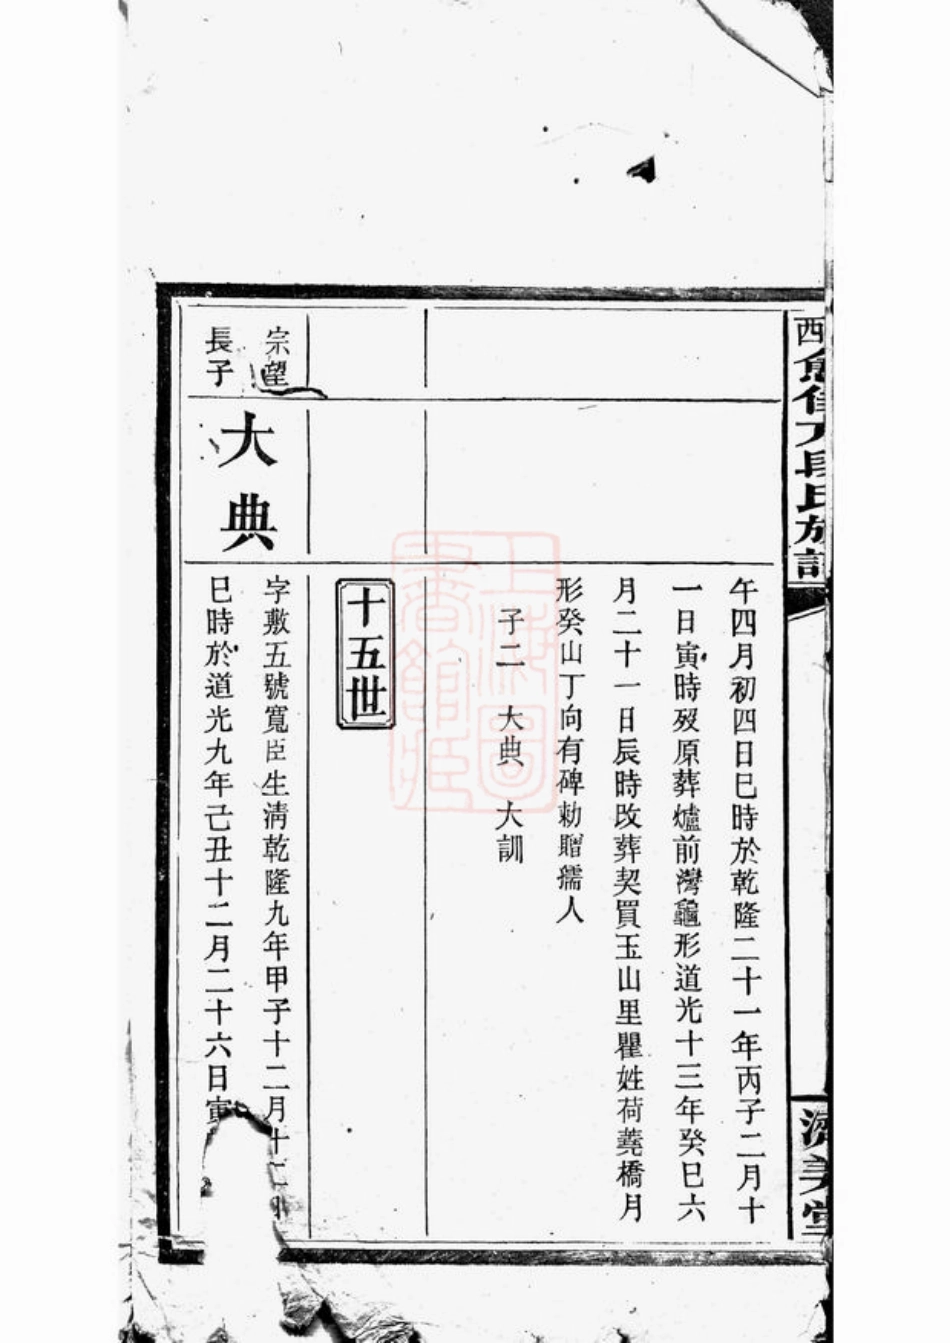 午四月初四日巳時於乾隆二十一年丙子二月十
一日寅時歿原葬爐前灣龜形道光十三年癸巳六
月二十一日辰時改葬契買玉山里瞿姓荷蕘橋月
形癸山丁向有碑勅贈孺人
子二 大典 大訓
十五世
宗望
長子
大典
字敷五號寬臣生淸乾隆九年甲子十二月十二
巳時於道光九年己丑十二月二十六日寅
上海圖書館藏